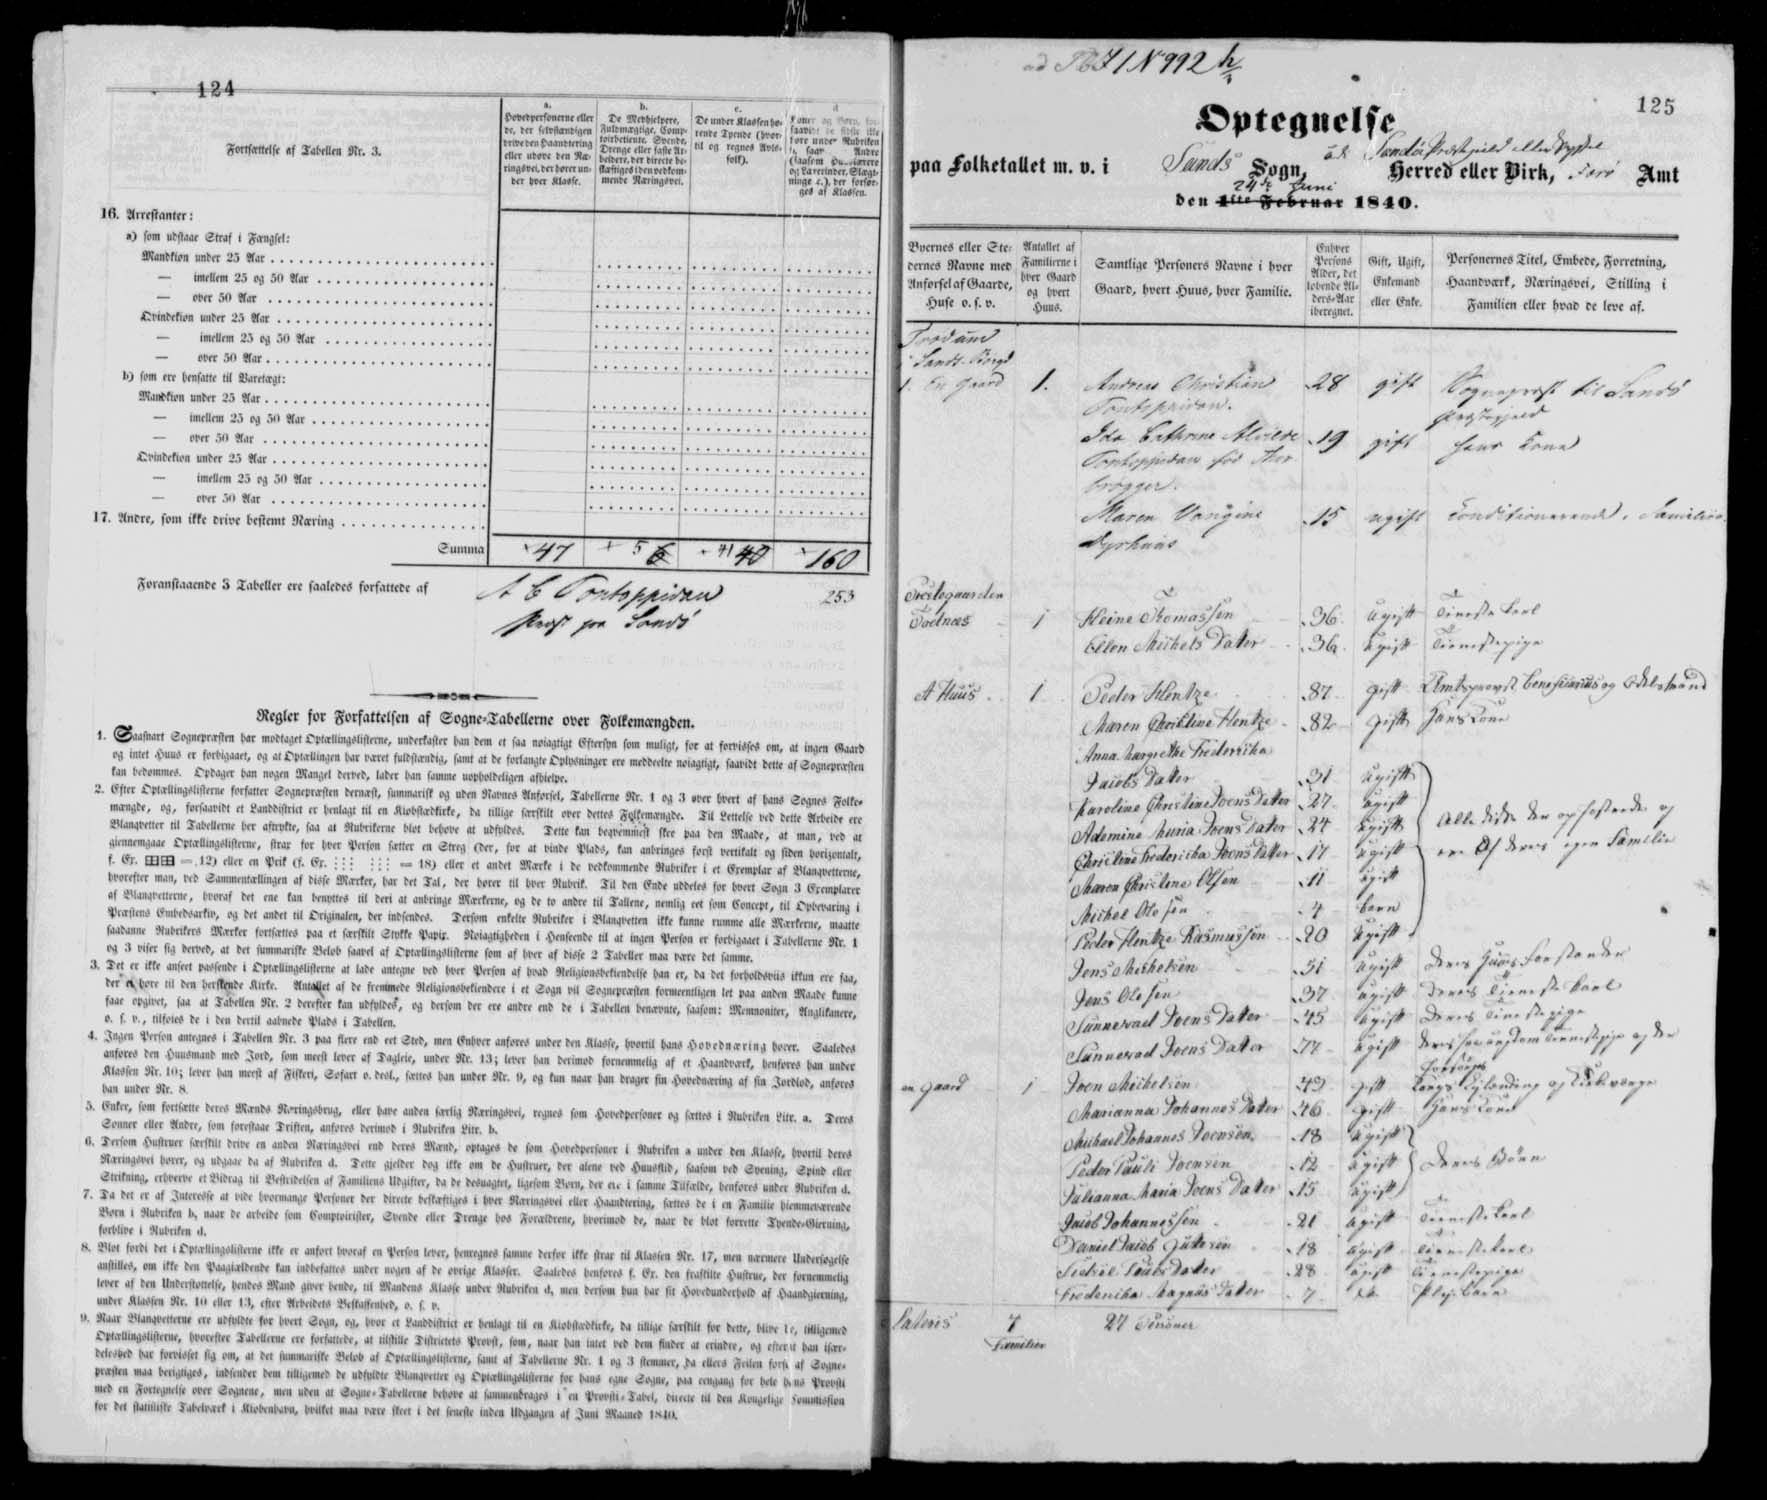 124
Fortsættelse af Tabellen Nr. 3.
a.
Hovedpersonerne eller
de, der selvstændigen
drive den Haandtering
eller udøve den Næ-
ringsvei, der hører un-
der hver Klasse.
b.
De Medhjelpere,
Fuldmægtige, Comp-
toirbetiente, Svende,
Drenge eller faste Ar-
beidere, der directe be-
skæftiges i den vedkom-
mende Næringsvei.
c.
De under Klassen hø-
rende Tyende (hvor-
til og regnes Avls-
folk).
d
Koner og Børn, for-
saavidt de sidste ikke
føre under Rubriken
b, samt Andre
(saasom Huuslærere
og Lærerinder, Slægt-
ninge c.), der forsør-
ges af Klassen.
16. Arrestanter:
a) som udstaae Straf i Fængsel:
Mandkiøn under 25 Aar
— imellem 25 og 50 Aar
— over 50 Aar
Qvindekiøn under 25 Aar
— imellem 25 og 50 Aar
— over 50 Aar
b) som ere hensatte til Varetægt:
Mandkiøn under 25 Aar
— imellem 25 og 50 Aar
— over 50 Aar
Qvindekiøn under 25 Aar
— imellem 25 og 50 Aar
— over 50 Aar
17. Andre, som ikke drive bestemt Næring
Summa 47 5 6 41 40 160
Foranstaaende 3 Tabeller ere saaledes forfattede af A C Pontoppidan 253
Præst paa Sandö
Regler for Forfattelsen af Sogne-Tabellerne over Folkemængden.
1. Saasnart Sognepræsten har modtaget Optællingslisterne, underkaster han dem et saa nøiagtigt Eftersyn som muligt, for at forvisses om, at ingen Gaard
og intet Huus er forbigaaet, og at Optællingen har været fuldstændig, samt at de forlangte Oplysninger ere meddeelte nøiagtigt, saavidt dette af Sognepræsten
kan bedømmes. Opdager han nogen Mangel derved, lader han samme uopholdeligen afhielpe.
2. Efter Optællingslisterne forfatter Sognepræsten dernæst, summarisk og uden Navnes Anførsel, Tabellerne Nr. 1 og 3 over hvert af hans Sognes Folke-
mængde, og, forsaavidt et Landdistrict er henlagt til en Kiøbstædkirke, da tillige særskilt over dettes Folkemængde. Til Lettelse ved dette Arbeide ere
Blanqvetter til Tabellerne her aftrykte, saa at Rubrikerne blot behøve at udfyldes. Dette kan beqvemmest skee paa den Maade, at man, ved at
giennemgaae Optællingslisterne, strax for hver Person sætter en Streg (der, for at vinde Plads, kan anbringes først vertikalt og siden horizontalt,
f. Ex. = 12) eller en Prik (f. Ex. = 18) eller et andet Mærke i de vedkommende Rubriker i et Exemplar af Blanqvetterne,
hvorefter man, ved Sammentællingen af disse Mærker, har det Tal, der hører til hver Rubrik. Til den Ende uddeles for hvert Sogn 3 Exemplarer
af Blanqvetterne, hvoraf det ene kan benyttes til deri at anbringe Mærkerne, og de to andre til Tallene, nemlig eet som Concept, til Opbevaring i
Præstens Embedsarkiv, og det andet til Originalen, der indsendes. Dersom enkelte Rubriker i Blanqvetten ikke kunne rumme alle Mærkerne, maatte
saadanne Rubrikers Mærker fortsættes paa et særskilt Stykke Papir. Nøiagtigheden i Henseende til at ingen Person er forbigaaet i Tabellerne Nr. 1
og 3 viser sig derved, at det summariske Beløb saavel af Optællingslisterne som af hver af disse 2 Tabeller maa være det samme.
3. Det er ikke anseet passende i Optællingslisterne at lade antegne ved hver Person af hvad Religionsbekiendelse han er, da det forholdsviis ikkun ere faa,
der ei høre til den herskende Kirke. Antallet af de fremmede Religionsbekiendere i et Sogn vil Sognepræsten formeentligen let paa anden Maade kunne
faae opgivet, saa at Tabellen Nr. 2 derefter kan udfyldes, og dersom der ere andre end de i Tabellen benævnte, saasom: Memnoniter, Anglikanere,
o. s. v., tilføies de i den dertil aabnede Plads i Tabellen.
4. Ingen Person antegnes i Tabellen Nr. 3 paa flere end eet Sted, men Enhver anføres under den Klasse, hvortil hans Hovednæring hører. Saaledes
anføres den Huusmand med Jord, som meest lever af Dagleie, under Nr. 13; lever han derimod fornemmelig af et Haandværk, henføres han under
Klassen Nr. 10; lever han meest af Fiskeri, Søfart o. desl., sættes han under Nr. 9, og kun naar han drager sin Hovednæring af sin Jordlod, anføres
han under Nr. 8.
5. Enker, som fortsætte deres Mænds Næringsbrug, eller have anden særlig Næringsvei, regnes som Hovedpersoner og sættes i Rubriken Litr. a. Deres
Sønner eller Andre, som forestaae Driften, anføres derimod i Rubriken Litr. b.
6. Dersom Hustruer særskilt drive en anden Næringsvei end deres Mænd, optages de som Hovedpersoner i Rubriken a under den Klasse, hvortil deres
Næringsvei hører, og udgaae da af Rubriken d. Dette gjelder dog ikke om de Hustruer, der alene ved Huusflid, saasom ved Syening, Spind eller
Strikning, erhverve et Bidrag til Bestridelsen af Familiens Udgifter, da de desuagtet, ligesom Børn, der ere i samme Tilfælde, henføres under Rubriken d.
7. Da det er af Interesse at vide hvormange Personer der directe beskæftiges i hver Næringsvei eller Haandtering, sættes de i en Familie hjemmeværende
Børn i Rubriken b, naar de arbeide som Comptoirister, Svende eller Drenge hos Forældrene, hvorimod de, naar de blot forrette Tyende-Gierning,
forblive i Rubriken d.
8. Blot fordi det i Optællingslisterne ikke er anført hvoraf en Person lever, henregnes samme derfor ikke strax til Klassen Nr. 17, men nærmere Undersøgelse
anstilles, om ikke den Paagjældende kan indbefattes under nogen af de øvrige Klasser. Saaledes henføres f. Ex. den fraskilte Hustrue, der fornemmelig
lever af den Understøttelse, hendes Mand giver hende, til Mandens Klasse under Rubriken d, men dersom hun har sit Hovedunderhold af Haandgierning,
under Klassen Nr. 10 eller 13, efter Arbeidets Beskaffenhed, o. s. v.
9. Naar Blanqvetterne ere udfyldte for hvert Sogn, og, hvor et Landdistrict er henlagt til en Kiøbstædkirke, da tillige særskilt for dette, blive de, tilligemed
Optællingslisterne, hvorefter Tabellerne ere forfattede, at tilstille Districtets Provst, som, naar han intet ved dem finder at erindre, og efterat han især-
deleshed har forvisset sig om, at det summariske Beløb af Optællingslisterne, samt af Tabellerne Nr. 1 og 3 stemmer, da ellers Feilen først af Sogne-
præsten maa berigtiges, indsender dem tilligemed de udfyldte Blanqvetter og Optællingslisterne for hans egne Sogne, paa eengang for hele hans Provsti
med en Fortegnelse over Sognene, men uden at Sogne-Tabellerne behøve at sammendrages i en Provsti-Tabel, directe til den Kongelige Commission
for det statistiske Tabelværk i Kiøbenhavn, hvilket maa være skeet i det seneste inden Udgangen af Juni Maaned 1840.
ad 71 N 992
125
Optegnelse
paa Folketallet m. v. i Sands Sogn, Sandö Præstegield eller Syssel Herred eller Birk, Færö Amt
24de Juni
den 1ste Februar 1840.
Byernes eller Ste-
dernes Navne med
Anførsel af Gaarde,
Huse o. s. v.
Antallet af
Familierne i
hver Gaard
og hvert
Huus.
Samtlige Personers Navne i hver
Gaard, hvert Huus, hver Familie.
Enhver
Persons
Alder, det
løbende Al-
ders-Aar
iberegnet.
Gift, Ugift,
Enkemand
eller Enke.
Personernes Titel, Embede, Forretning,
Haandværk, Næringsvei, Stilling i
Familien eller hvad de leve af.
Trødum
i Sands Bøigd
1. En Gaard 1. Andreas Christian 28 gift Sognepræst til Sandö
Pontoppidan. Præstegjeld
Ida Cathrine Alvilde 19 gift hans Kone
Pontoppidan fød Thor-
brøgger.
Maren 15 ugift Conditionerende i Familien
Dyrhuus
Præstegaarden
Todtnæs 1 Heine Thomassen 36 Ugift Tieneste karl
Ellen Michels Datter 36 Ugift Tienestepige
Et Huus 1 Peder Hentze 87 gift Amtsprovst, beneficarius og Odelsmand
Maren Christine Hentze 82 gift Hans Kone
Anna Margrethe Frederika
Jacobs Datter 31 Ugift
Karoline Christine Joens Datter 27 Ugift
Ademine Maria Joens Datter 24 Ugift Alle disse ere opfostrede og
Christine Fredericka Joens Datter 17 Ugift ere af deres egen Familie
Maren Christine Olsen 11 Ugift
Michel Olesen 4 barn
Peder Hentze Rasmussen 20 Ugift
Jens Michelsen 51 Ugift deres Huus Forstander
Jens Olesen 37 Ugift deres Tieneste karl
Sunnevad Joens Datter 45 Ugift Deres Tienestepige
Sunnevad Joens Datter 77 Ugift
en Gaard 1 Joen Michelsen 49 gift Kongs og Kirkeværge
Marianna Johannes Datter 46 gift Hans Kone
Michael Johannes Joensen 18 Ugift
Peder Pauli Joensen 12 Ugift Deres Børn
Julianna Maria Joens Datter 15 Ugift
Jacob Johannessen 21 Ugift Tieneste karl
Daniel Jacob 18 Ugift Tieneste karl
Datter 28 Ugift Tienestepige
Fredericka Magnus Datter 7 Pleje barn
Lateris 4 27 Personer
Familier